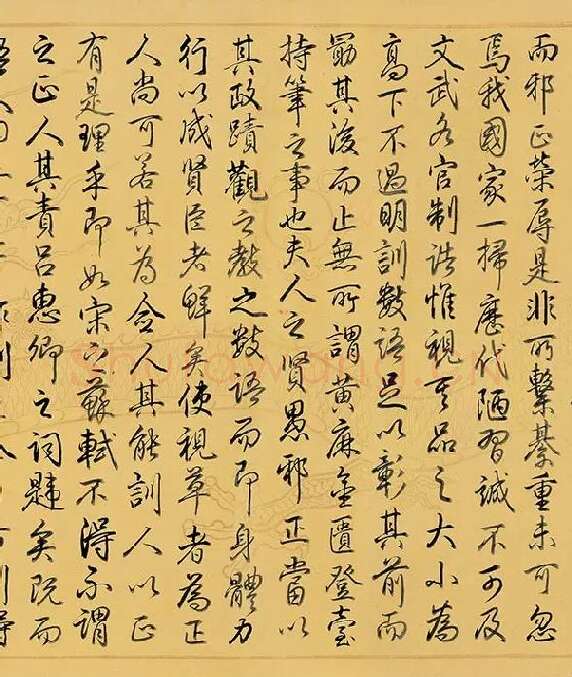 而邪正榮辱是非所繫綦重未可忽
焉我國家一掃歷代陋習誠不可及
文武各官制誥惟視其品之大小為
高下不過明訓數語足以彰其前而
勗其後而止無所謂黃麻金匱登臺
持筆之事也夫人之賢愚邪正當以
其政蹟觀之教之數語而即身體力
行以成賢臣者鮮矣使視草者為正
人尚可若其為佥人其能訓人以正
有是理乎即如宋之蘇軾不得不謂
之正人其責呂惠卿之詞韙矣既而